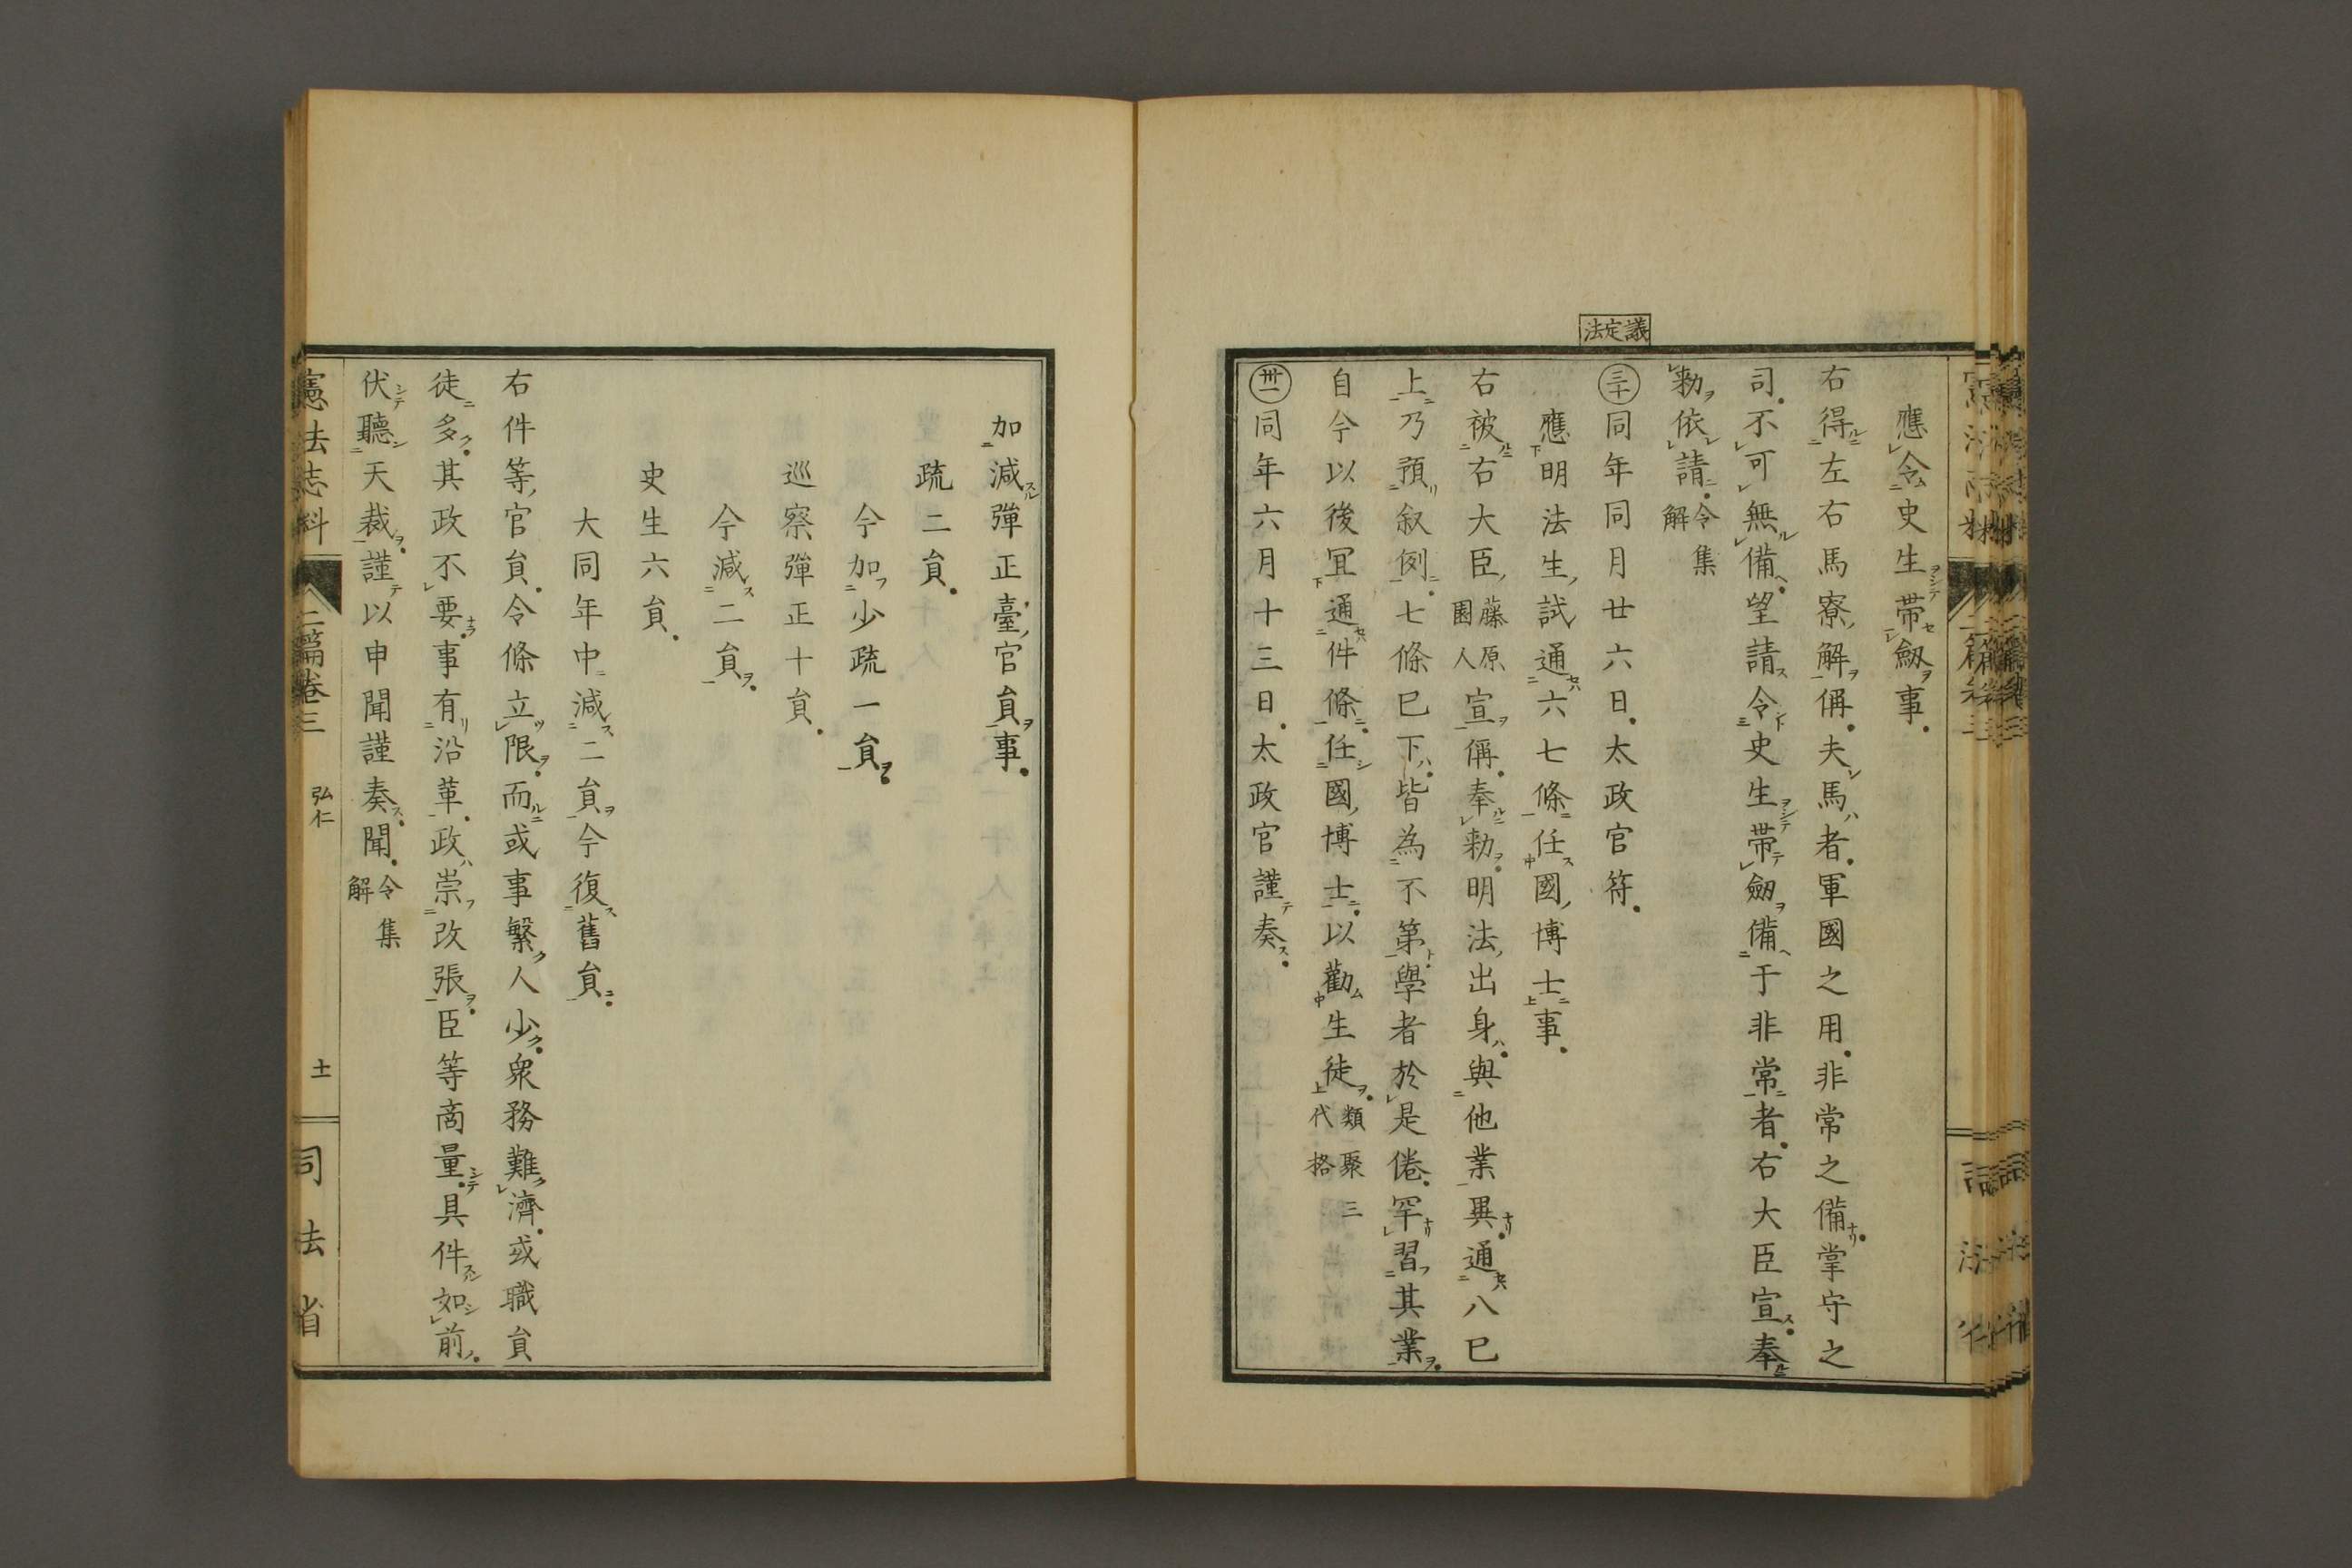 應令史生帶劔事。
右得左右馬寮解偁。夫馬者。軍國之用。非常之備。掌守之
司。不可無備。望請。令史生帶劔備于非常者。右大臣宣。奉
勅依請。令集解
議定法
三十 同年同月廿六日。太政官符。
應明法生試通六七條任國博士事。
右被右大臣藤原園人宣偁。奉勅。明法出身。與他業異。通八已
上乃預叙例。七條已下。皆為不第。學者於是倦。罕習其業。
自今以後宜通件條。任國博士。以勸生徒。類聚三代格
卅一 同年六月十三日。太政官謹奏。
加減彈正臺官員事。
疏二員。
今加少疏一員。
巡察彈正十員。
今減二員。
史生六員。
大同年中減二員今復舊員。
右件等官員。令條立限。而或事繁人少。衆務難濟。或職員
徒多。其政不要。事有沿革。政崇改張。臣等商量。具件如前。
伏聽天裁。謹以申聞謹奏。聞。令集解
憲法志料 二篇卷三 弘仁 十一 司法省